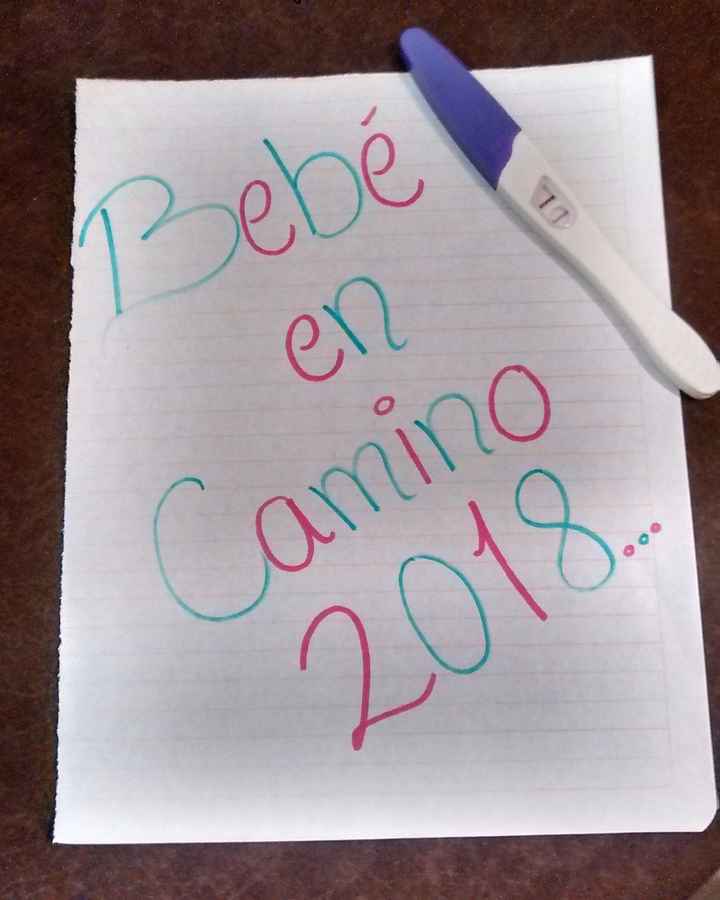 Bebé
en
Camino
2018...